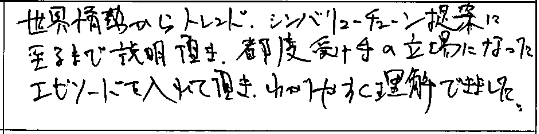 世界情勢からトレンド、シンバリューチェーン提案に
至るまで説明頂き、都度受け手の立場になった
エピソードを入れて頂き、わかりやすく理解できました。